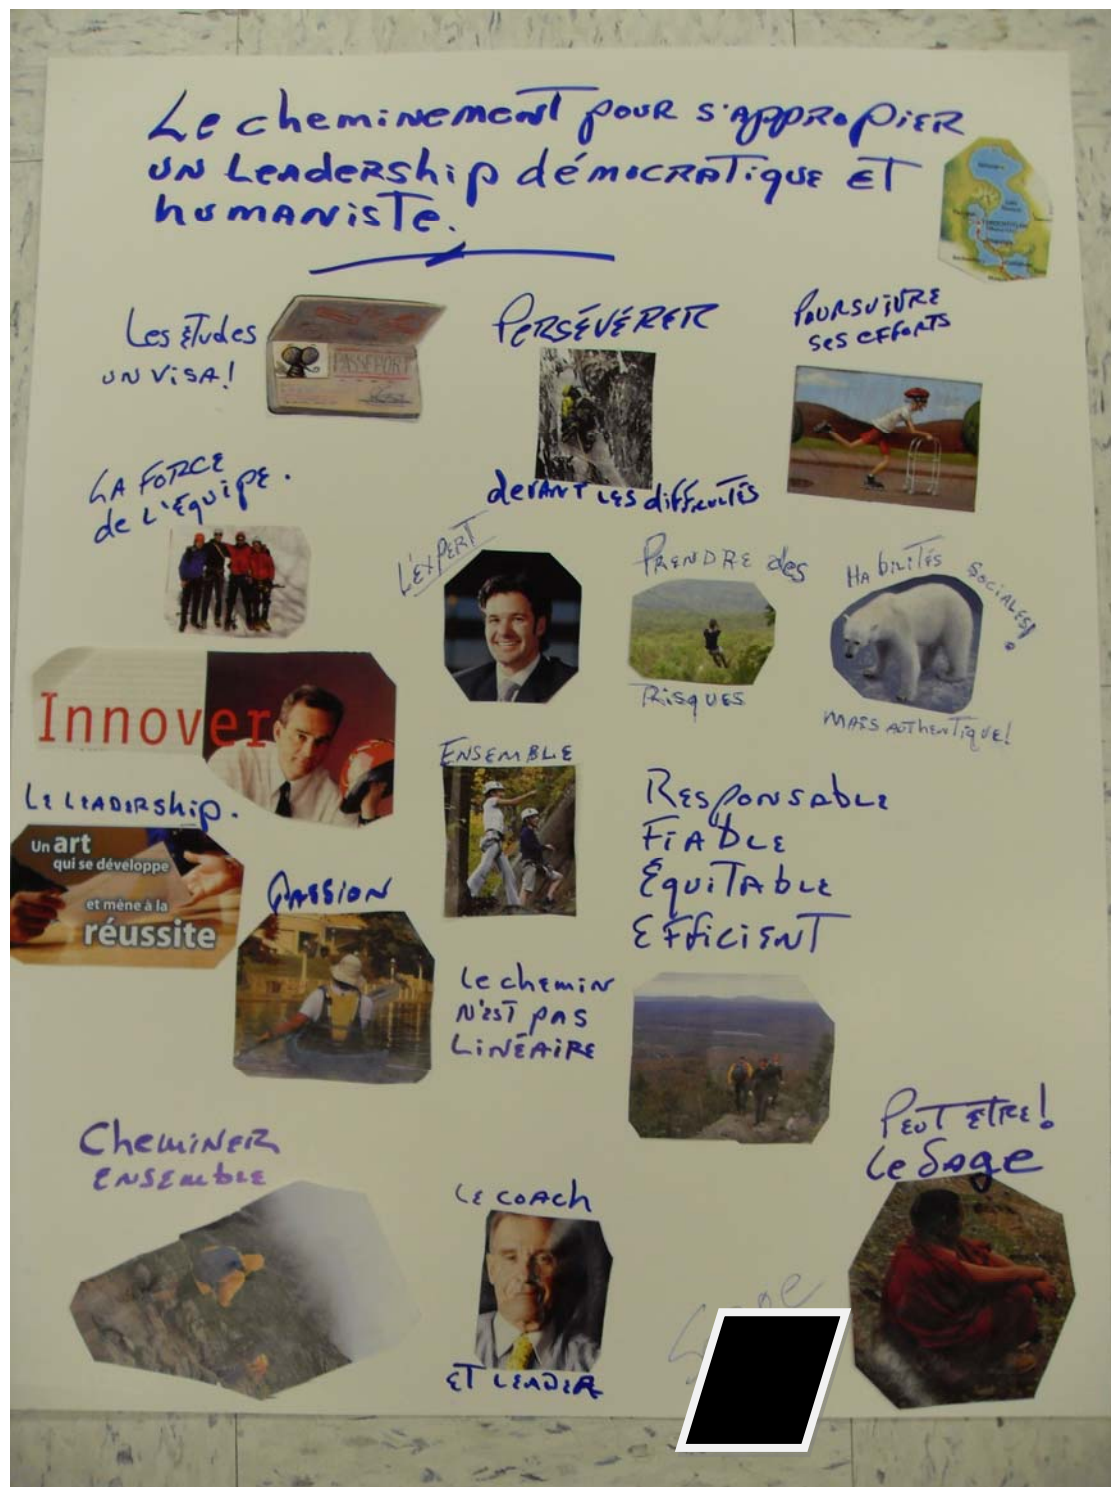 Le cheminement pour s'appropier
un Leadership démocratique et
humaniste.
Les études
un visa!
PASSEPORT
Persévérer
devant les difficultés
Poursuivre
ses efforts
La force
de l'équipe.
L'expert
Prendre des
Risques
Habilités sociales!
mais authentique!
Innover
Le leadership.
Un art
qui se développe
et mène à la
réussite
Ensemble
Responsable
Fiable
Équitable
Efficient
Passion
Le chemin
n'est pas
Linéaire
Cheminer
ensemble
Le coach
et leader
Peut etre!
Le Sage